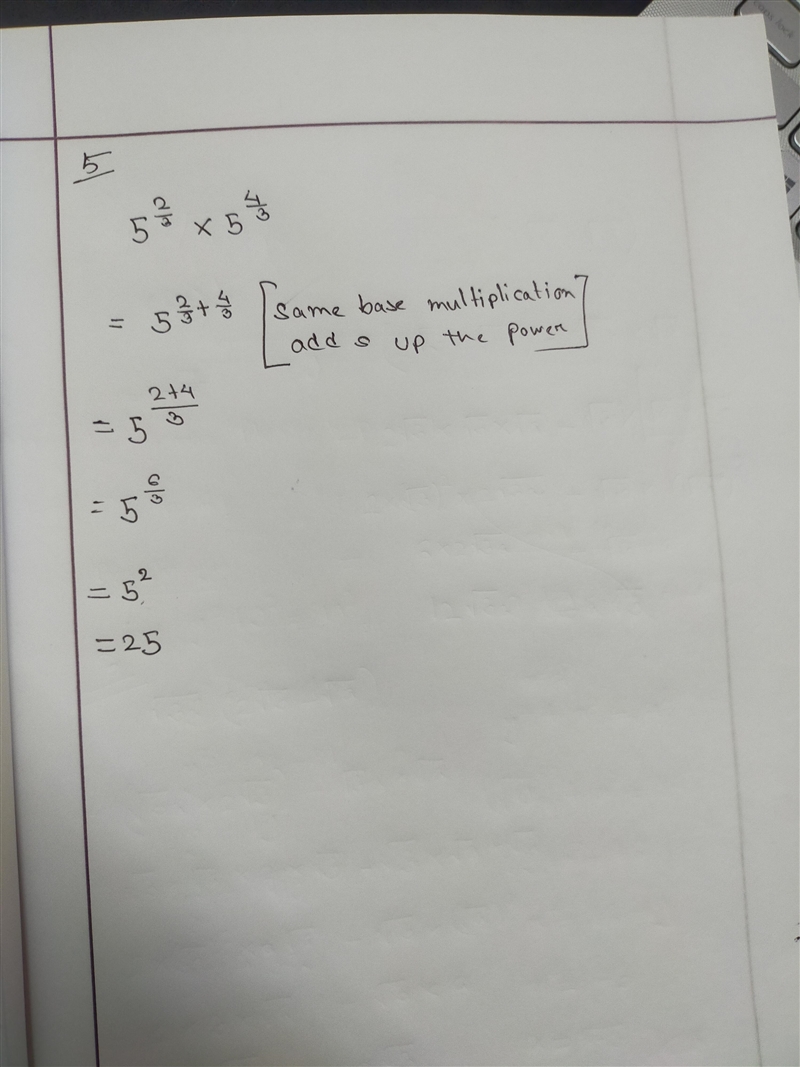 5
5^{2/3} × 5^{4/3}
= 5^{2/3 + 4/3} [same base multiplication
adds up the power]
= 5^{(2+4)/3}
= 5^{6/3}
= 5^2
= 25